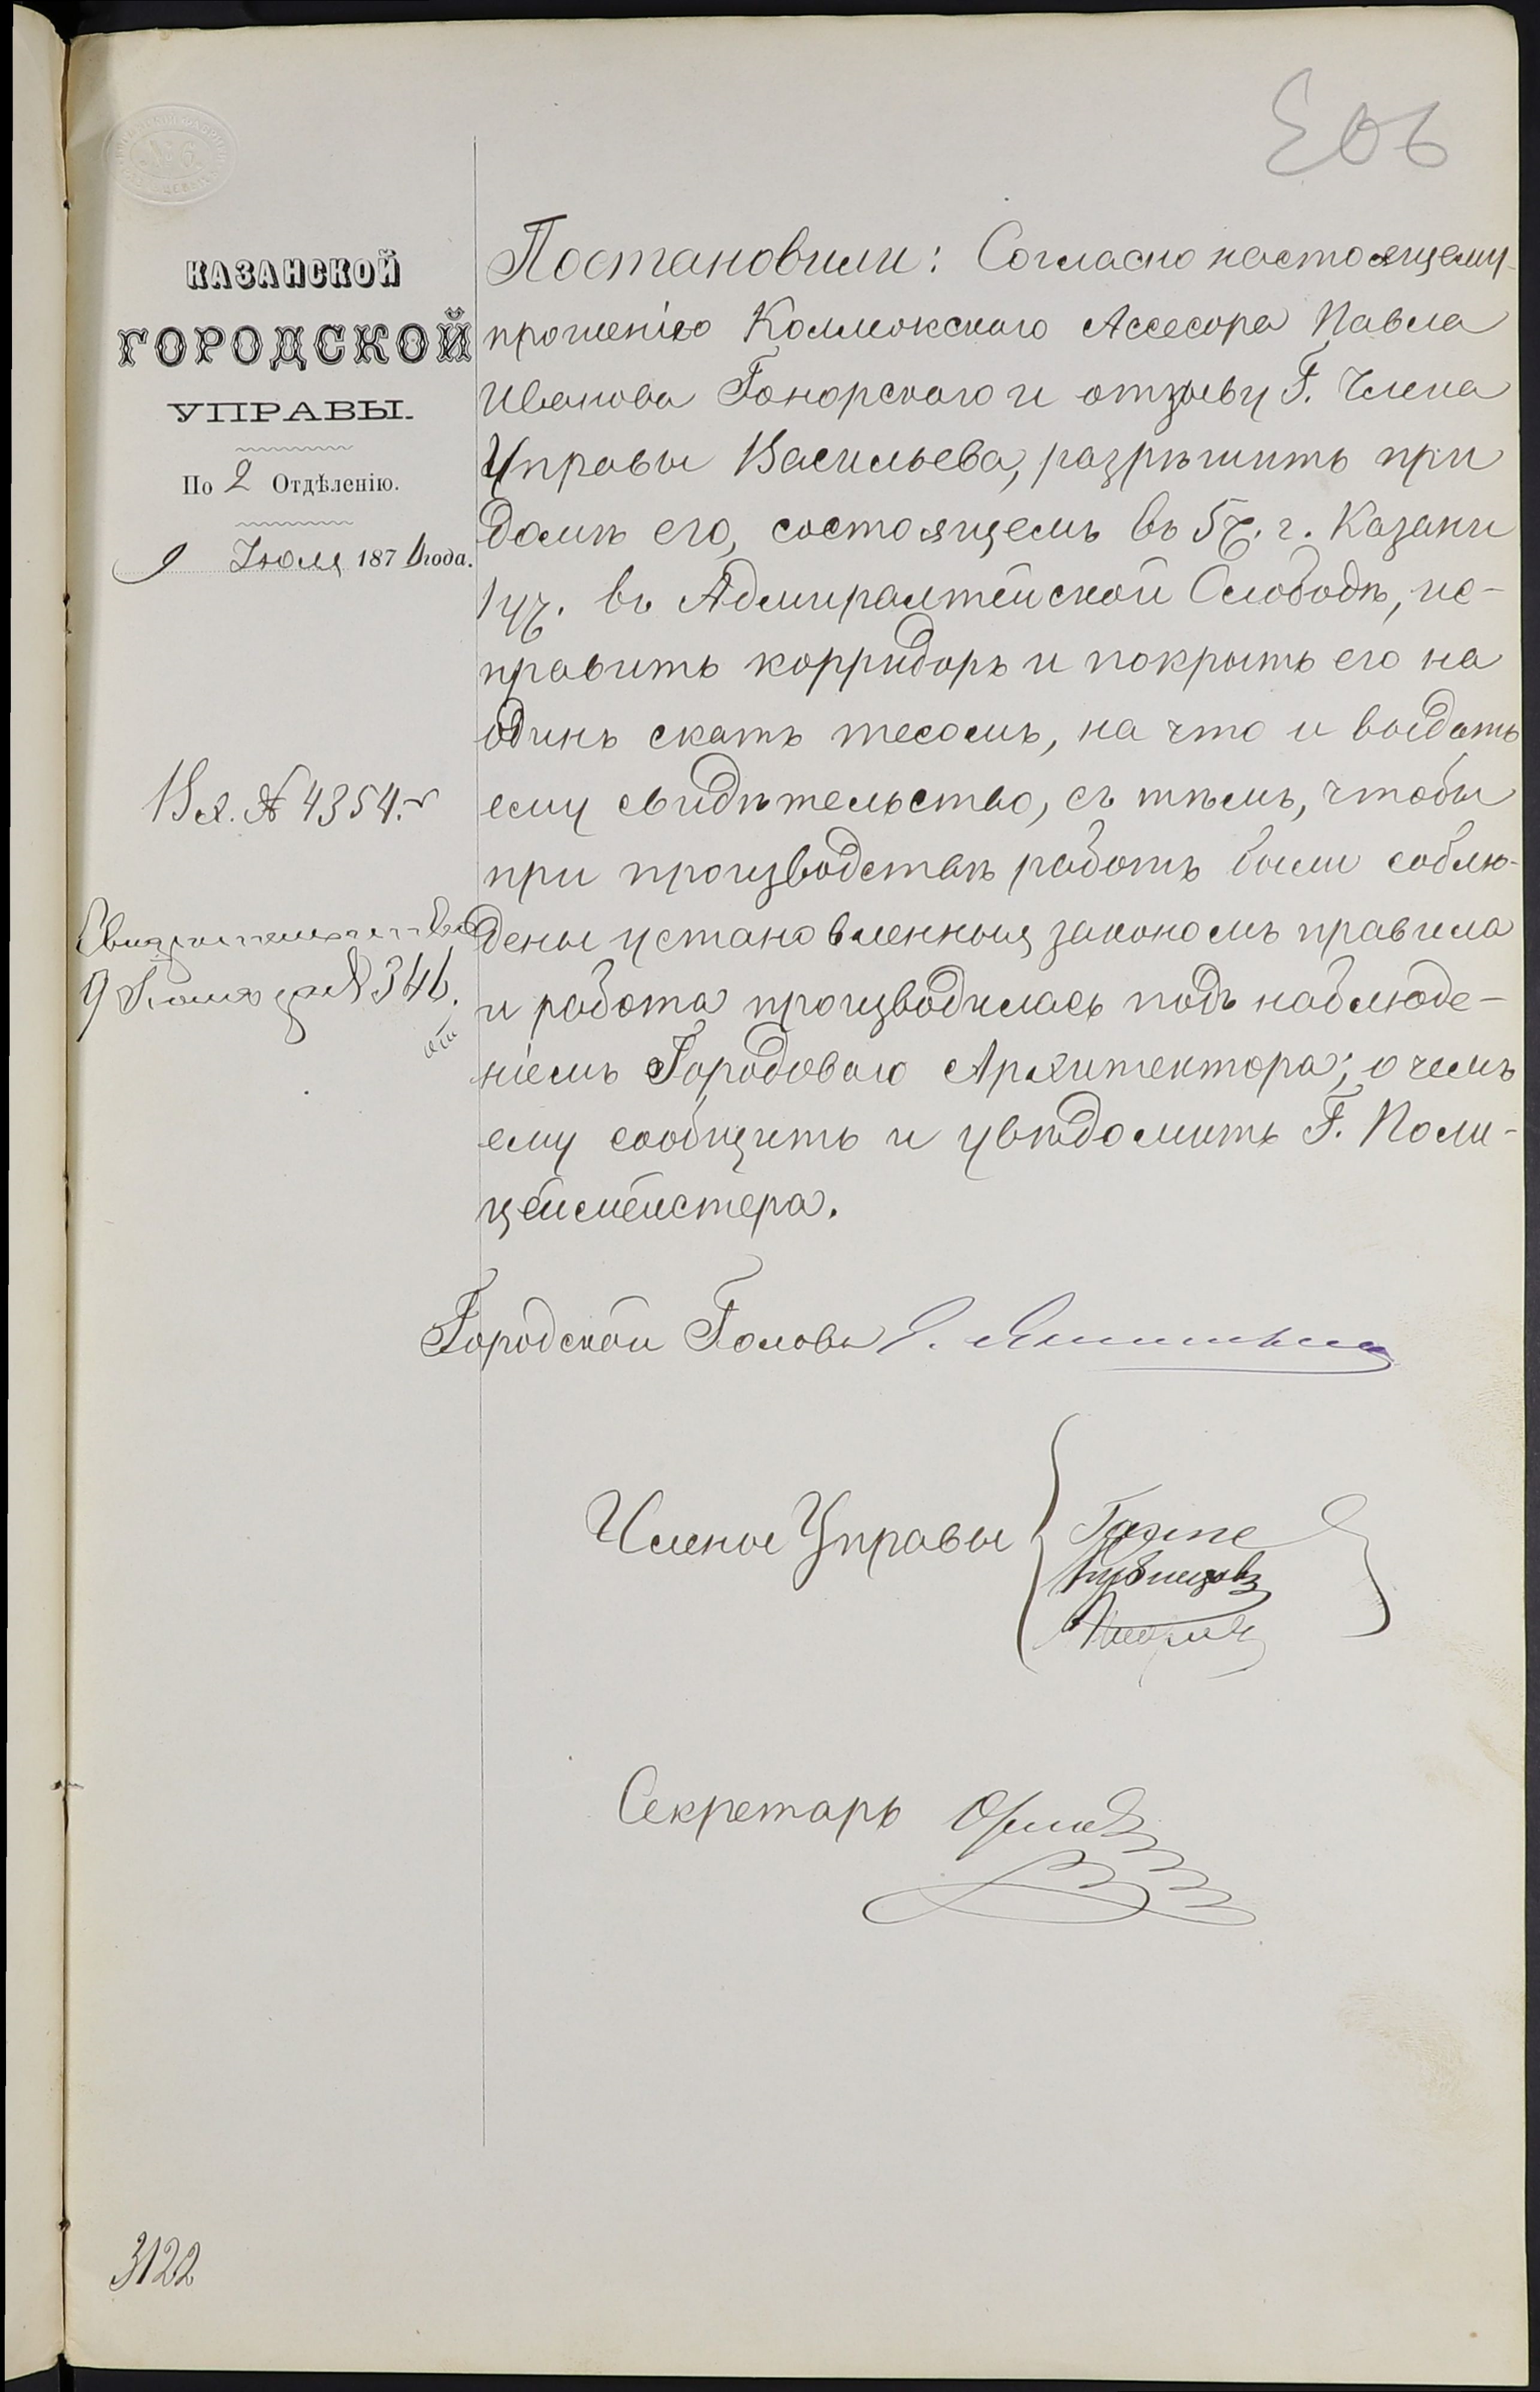 КАЗАНСКОЙ
ГОРОДСКОЙ
УПРАВЫ.
По 2 Отдѣленію.
9 Іюля 187 года.
Вх. № 4354.
9 Іюля за № 346.
Постановили: Согласно настоящему
прошенію Коллежскаго Ассесора Павла
Иванова Гонорскаго и отзыву Г. Члена
Управы Васильева, разрѣшить при
домѣ его, состоящемъ въ 5 ч. г. Казани
1 уч. въ Адмиралтейской Слободѣ, ис-
править корридоръ и покрыть его на
одинъ скатъ тесомъ, на что и выдать
ему свидѣтельство, съ тѣмъ, чтобы
при производствѣ работъ были соблю-
дены установленныя закономъ правила
и работа производилась подъ наблюде-
ніемъ Городоваго Архитектора; о чемъ
ему сообщить и увѣдомить Г. Поли-
цеймейстера.
Городской Голова
Члены Управы
Секретарь Орловъ
3122